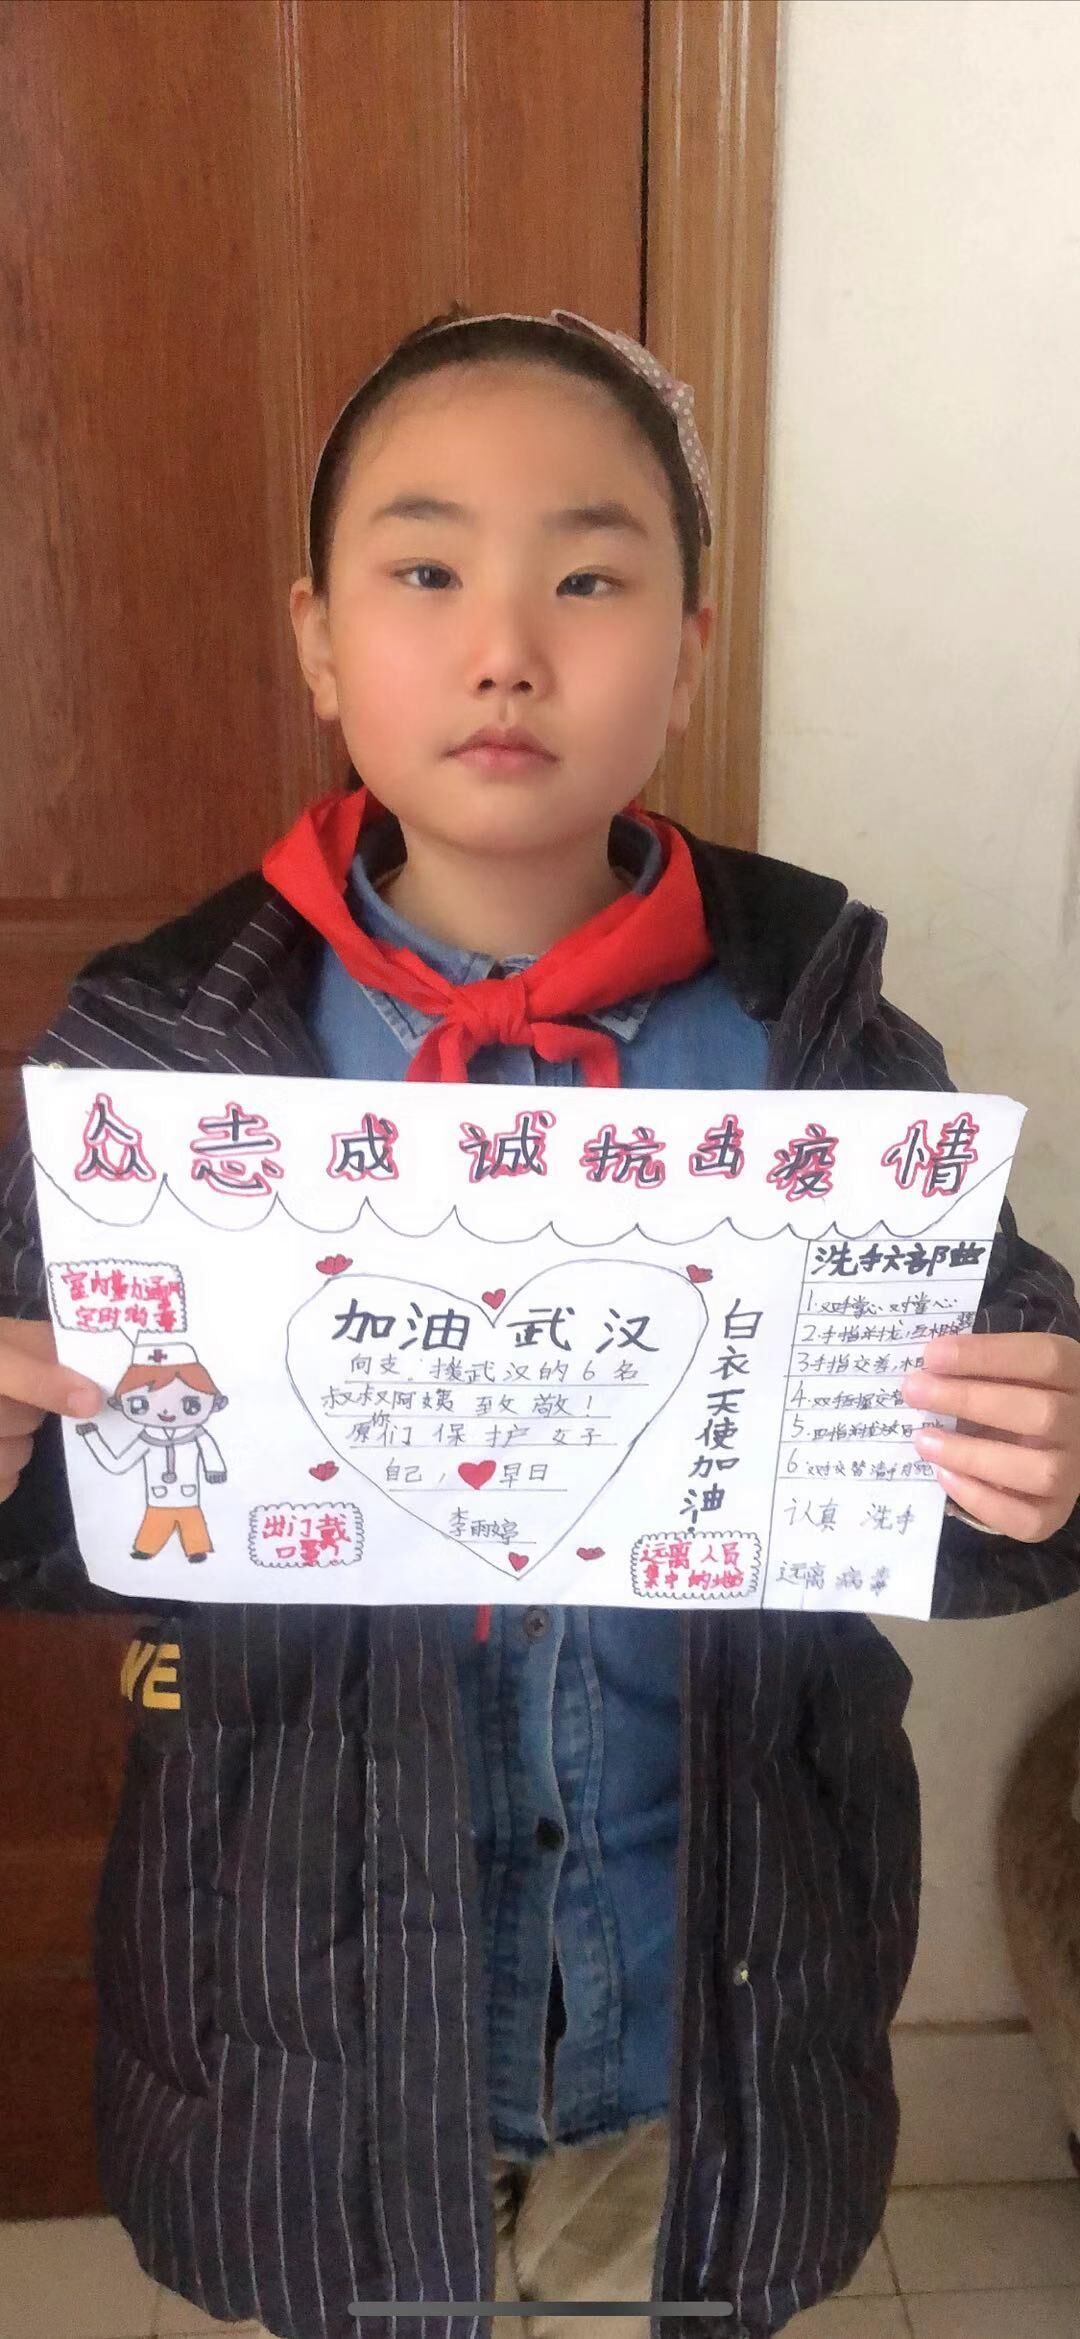 众志成诚抗击疫情
室内勤力通风
定时消毒
加油武汉
向支援武汉的6名
叔叔阿姨致敬!
原你们保护好
自己,早日
李雨婷
出门戴
口罩
白衣天使加油
远离人员
集中的地方
洗手六部曲
1.对掌心对掌心
2.手指并拢,互相
3手指交差,相
4.双
5.四指并拢
6对交替
认真 洗手
远离病毒
WE